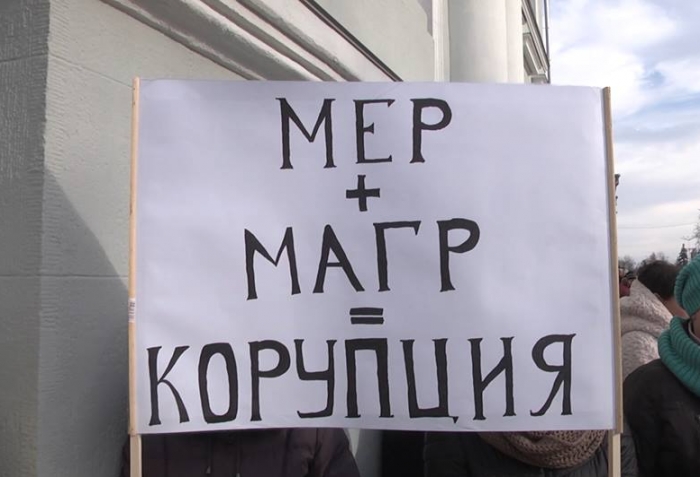 МЕР
+
МАГР
=
КОРУПЦИЯ